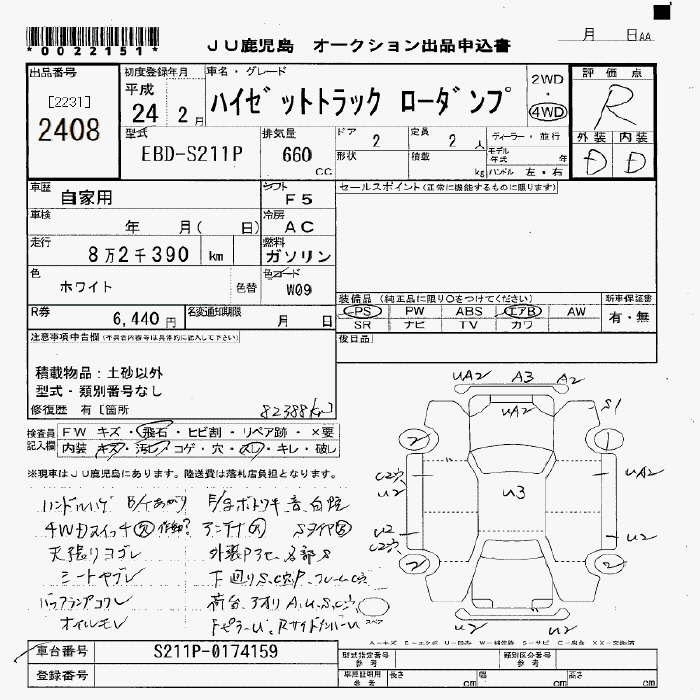 *0022151*
JU鹿児島 オークション出品申込書
月 日AA
出品番号
[2231]
2408
初度登録年月
平成
24 2月
車名・グレード
ハイゼットトラック ローダンプ
2WD
・
4WD
評価点
R
外装 内装
D D
型式
EBD-S211P
排気量
660
CC
ドア
2
定員
2 人
ディーラー・並行
形状
積載
kg
モデル年式 年
ハンドル 左・右
車歴
自家用
シフト
F5
セールスポイント(正常に機能するものに限ります)
車検
年 月( 日)
冷房
AC
走行
8万2千390 km
燃料
ガソリン
色
ホワイト
色替
色コード
W09
装備品 (純正品に限り○をつけてください)
新車保証書
PS PW ABS エアB AW
有・無
SR ナビ TV カワ
R券
6,440円
名変通知期限
月 日
後日品
注意事項申告欄(不具合内容等は具体的に記入して下さい)
積載物品:土砂以外
型式・類別番号なし
修復歴 有〔箇所
82388km〕
検査員
記入欄
FW キズ・飛石・ヒビ割・リペア跡・×要
内装・キズ・汚レ・コゲ・穴・スレ・キレ・破レ
※現車はJU鹿児島にあります。陸送費は落札店負担となります。
ハンドルハゲ
4WDスイッチ欠 作動?
アンテナ欠
天張りヨゴレ
外装
シートヤブレ
下回りS,C穴,P,フレームC穴
荷台、アオリA,U,S,C穴
オイルモレ
UA2 A3 A2
UA2
S1
2
1
C2穴
U2
U3
UA2
U2
C2穴
U2
2
2
U2
U2
スペア
A-キズ E-エクボ U-凹み W-補修跡 S-サビ C-腐食 XX-交換済
車台番号
S211P-0174159
型式指定番号
参考
類別区分番号
参考
登録番号
車庫証明用
参考
長さ cm
幅 cm
高さ cm